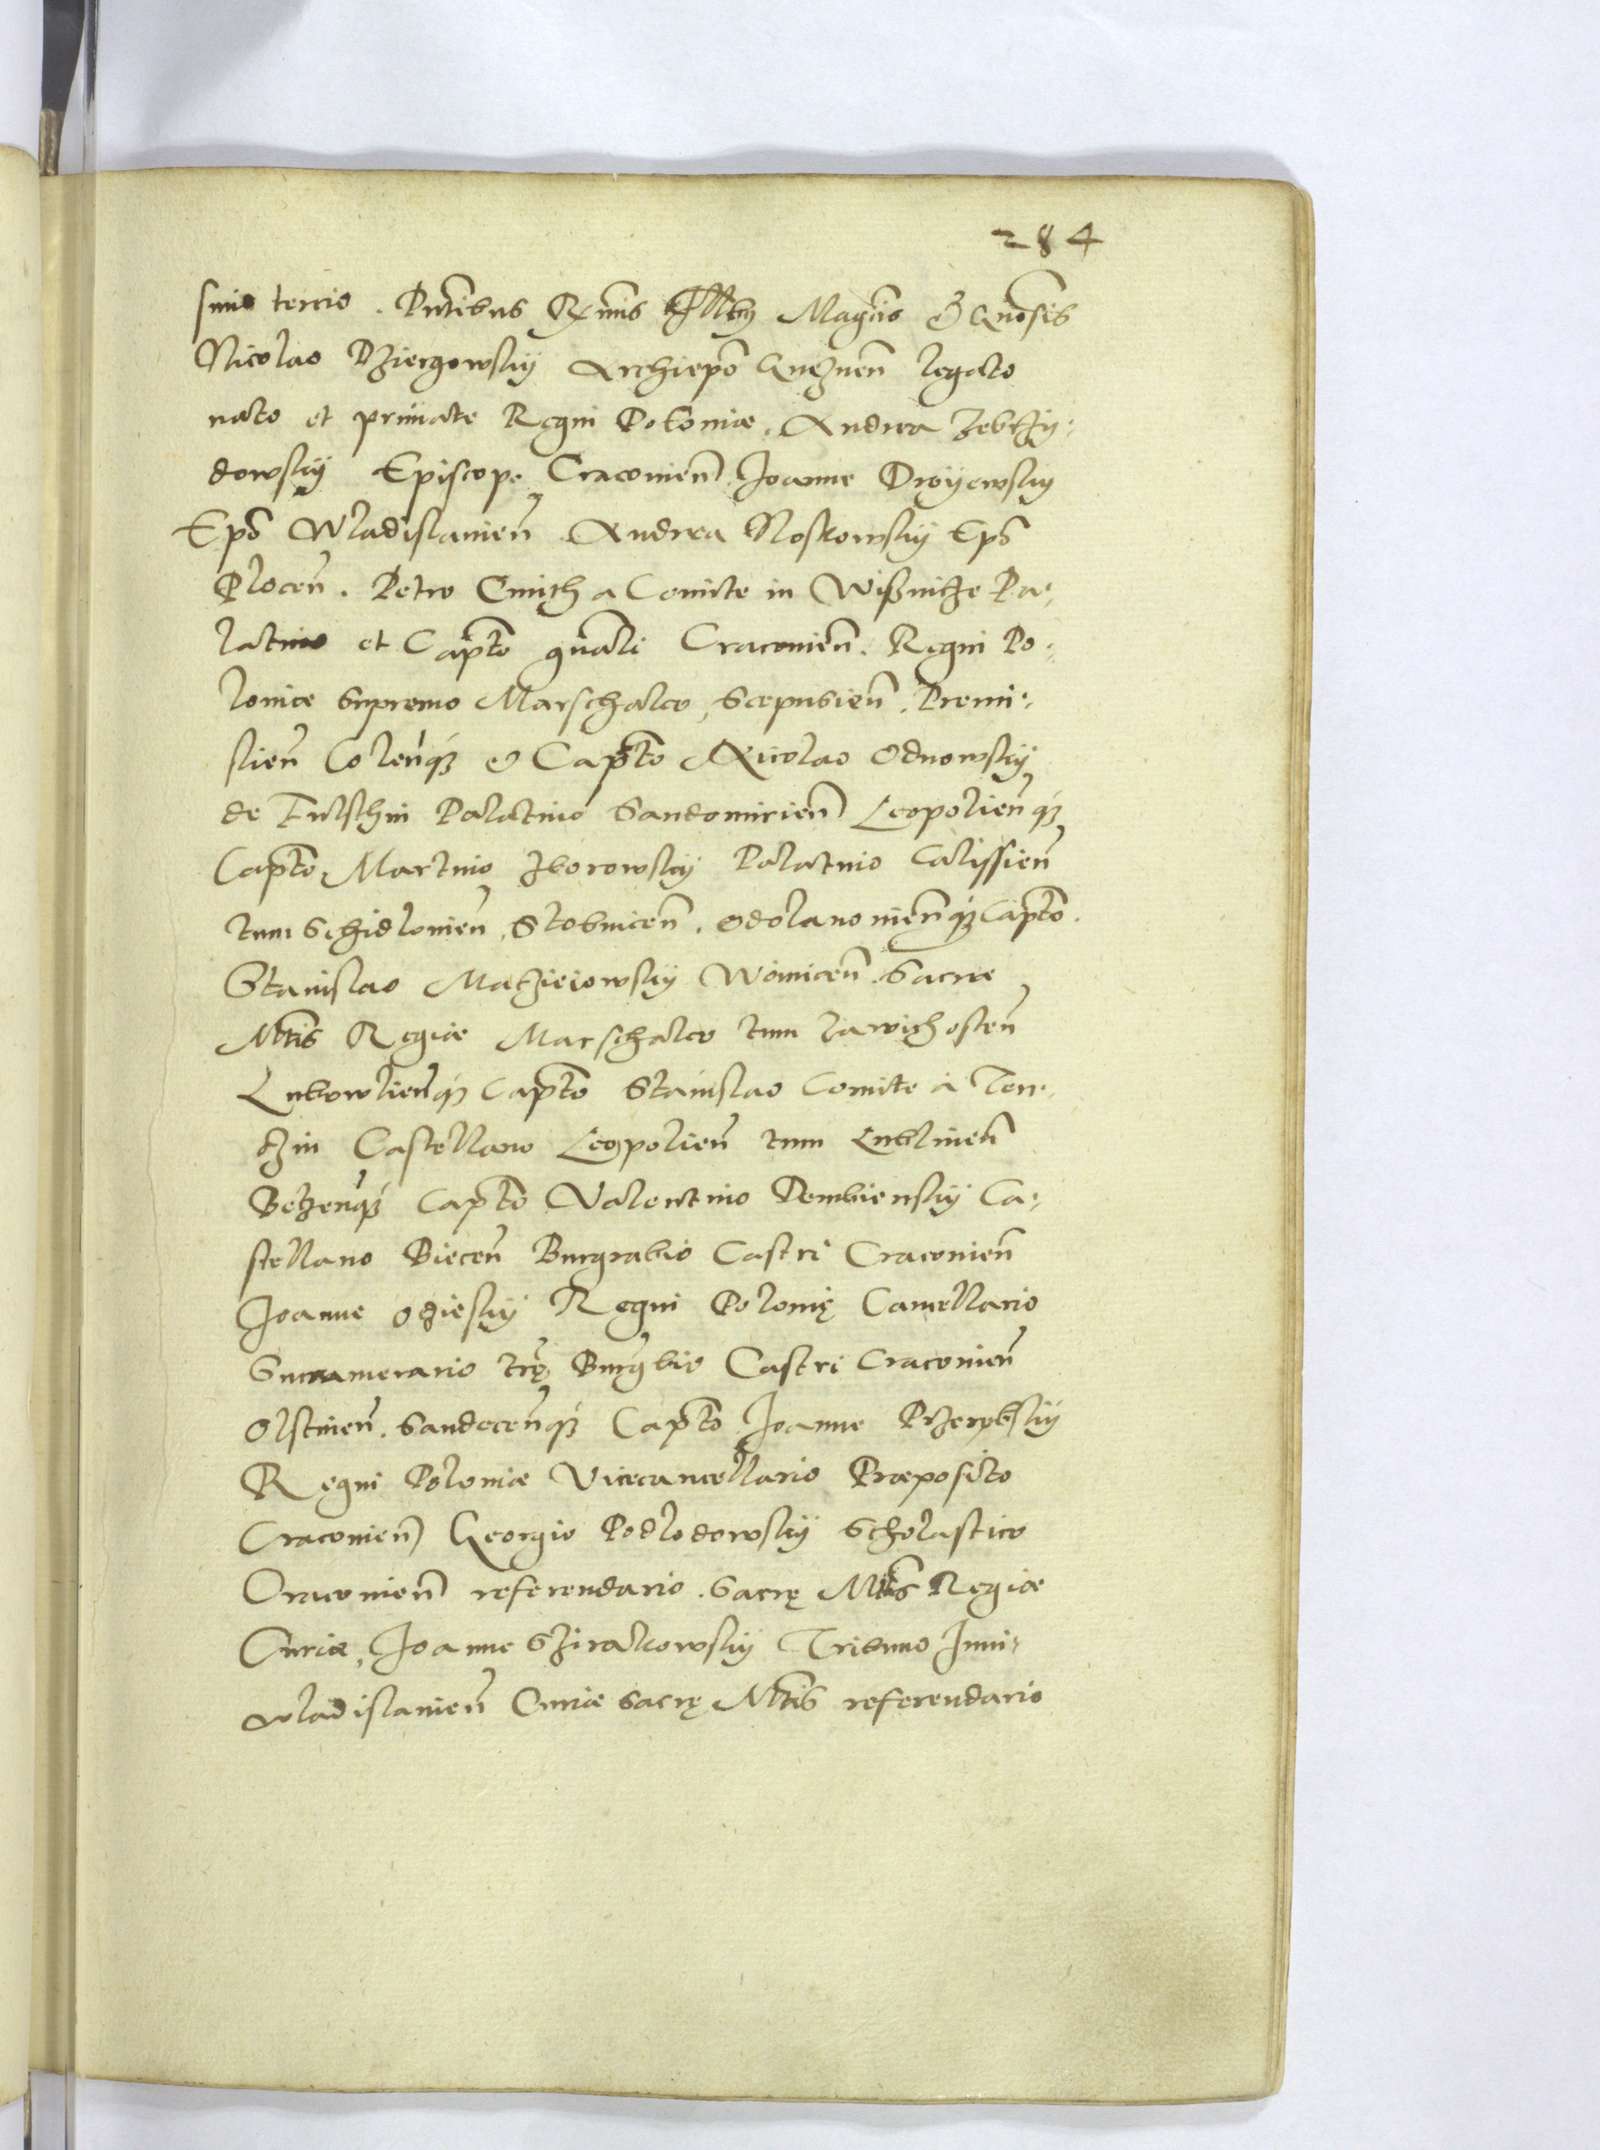 284
simo tercio. Pntibus Rxmis Illbus Magcis & Gnosis
Nicolao Dziergowskij Archiepo Gneznen legato
nato et primate Regni Poloniae. Andrea Zebrzy-
dowskij Episcop. Cracovien. Joanne Droyewskij
Epo Wladislavien. Andrea Noskowskij Epo
Plocen. Petro Cmith a Comite in Wißnicze Pa-
latino et Capto gnali Cracovien. Regni Po-
loniae Supremo Marschalco, Scepusien. Premi-
slien Colenq3 & Capto Nicolao Odnowskij
de Fulschin Palatino Sandomirien Leopolienq3
Capto, Martino Zborowskij Palatino Calissien
tum Schidlovien, Stobnicen. Odolanovienq3 Capto.
Stanislao Maczieiowskij Woinicen. Sacrae
Mtis Regiae Marschalco tum Zawichosten
Lukowlienq3 Capto Stanislao Comite à Ten-
czin Castellano Leopolien tum Lublinen
Belzenq3 Capto Valentino Dembienskij Ca-
stellano Biecen Burgrabio Castri Cracovien
Joanne Oczieskij Regni Polonię Cancellario
Succamerario trę Burgbio Castri Cracovien
Olstinen. Sandecenq3 Capto Joanne Przerebskij
Regni Poloniae Vicecancellario Praeposito
Cracovien Georgio Podlodowskij Scholastico
Cracovien referendario. Sacrę Mtis Regiae
Curiae, Joanne Skiralcowskij Tribuno Juni-
wladislavien Curiae sacrę Mtis referendario